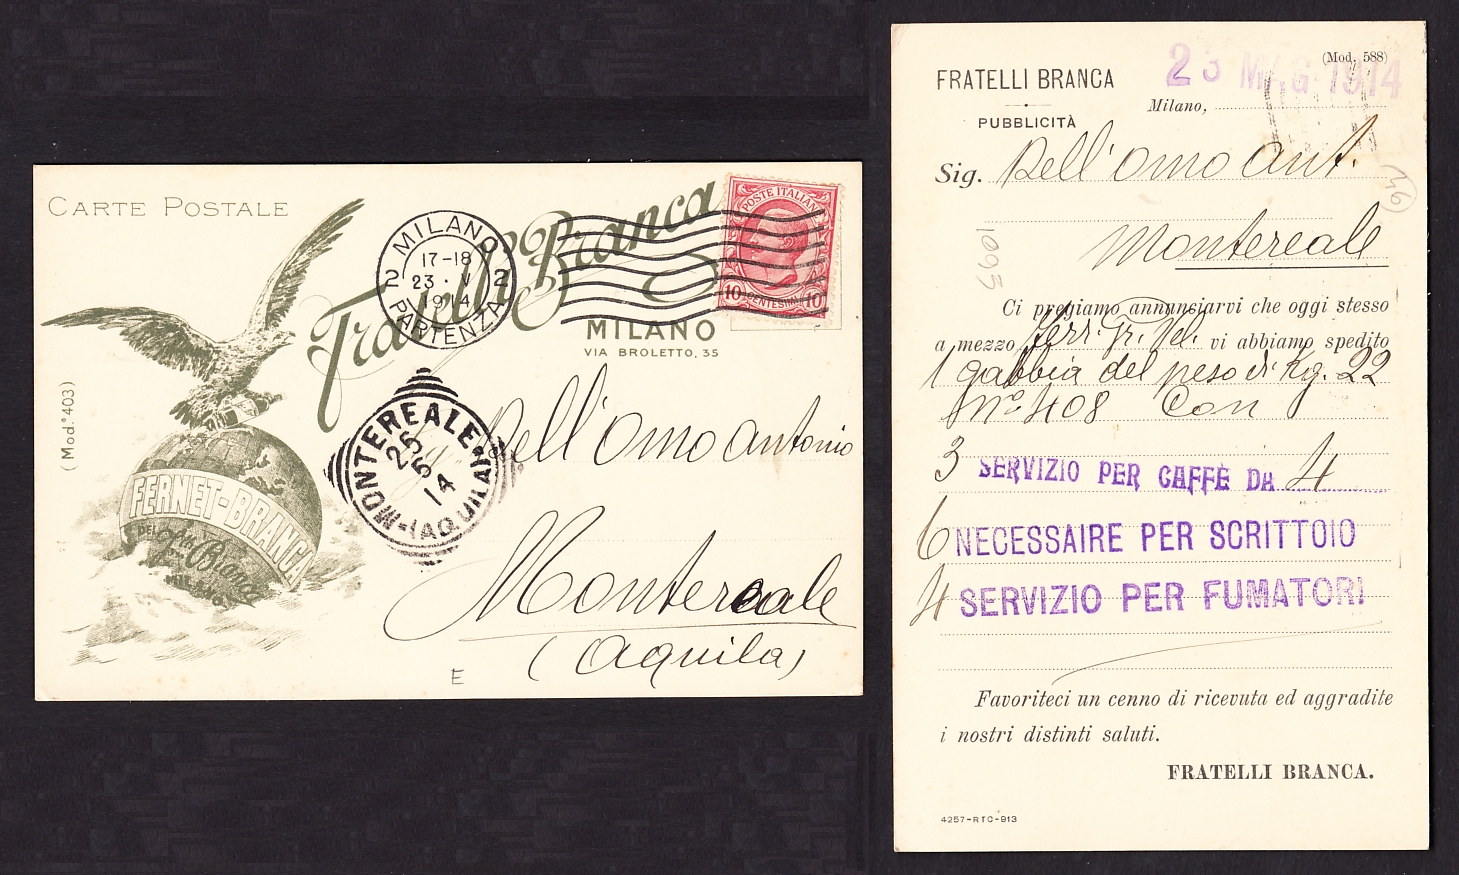 CARTE POSTALE
Fratelli Branca
MILANO
VIA BROLETTO, 35
MILANO
17-18
23 · V
1914
2 2
PARTENZA
POSTE ITALIANE
10 CENTESIMI 10
(Mod.° 403)
FERNET-BRANCA
DEI Flli Branca
MILANO
MONTEREALE
26
5
14
(AQUILA)
Dell'Omo Antonio
Montereale
(Aquila)
E
(Mod. 588)
FRATELLI BRANCA
23 MAG 1914
Milano,
PUBBLICITÀ
Sig. Dell'Omo Ant.
Montereale
1095
Ci pregiamo annunsiarvi che oggi stesso
a mezzo Ferr. Gr. Vel. vi abbiamo spedito
1 gabbia del peso di Kg. 22
N° 408 Con
3 SERVIZIO PER CAFFÈ DA 4
6 NECESSAIRE PER SCRITTOIO
4 SERVIZIO PER FUMATORI
Favoriteci un cenno di ricevuta ed aggradite
i nostri distinti saluti.
FRATELLI BRANCA.
4257-RTC-913